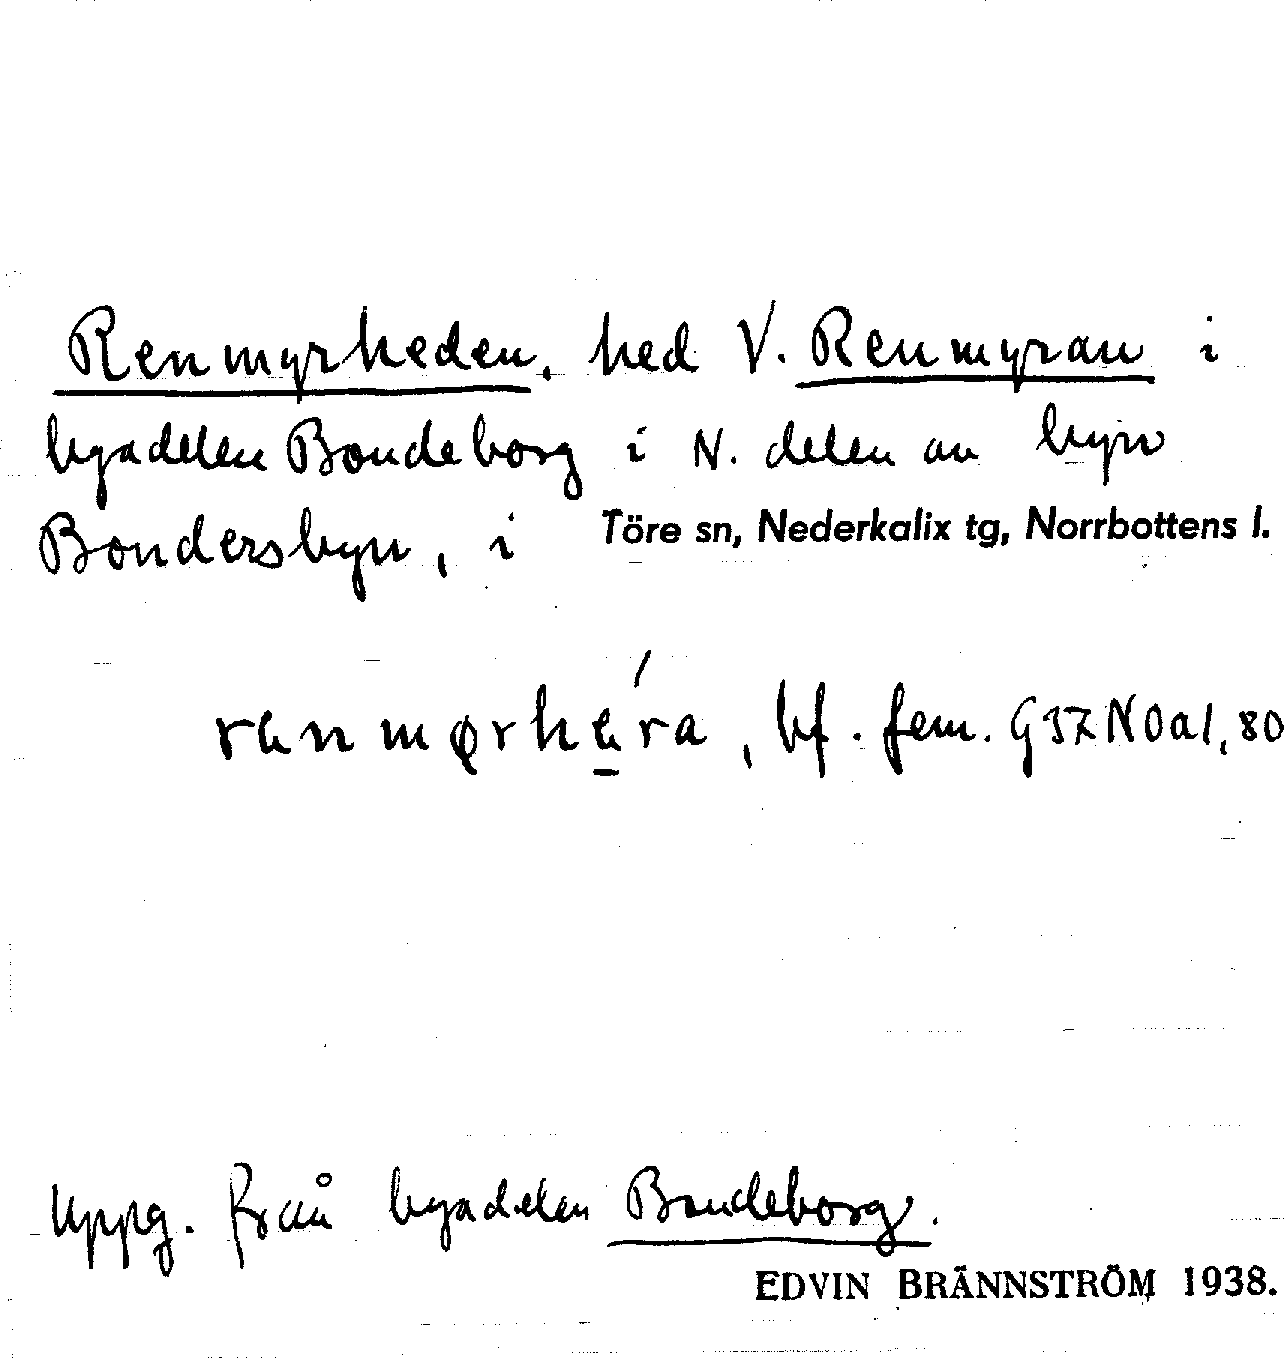 Renmyrheden, hed V. Renmyran i
byadelen Bondeborg i N. delen av byn
Bondersbyn, i Töre sn, Nederkalix tg, Norrbottens l.
bf. fem. G37NOa1,80
Uppg. från byadelen Bondeborg.
EDVIN BRÄNNSTRÖM 1938.